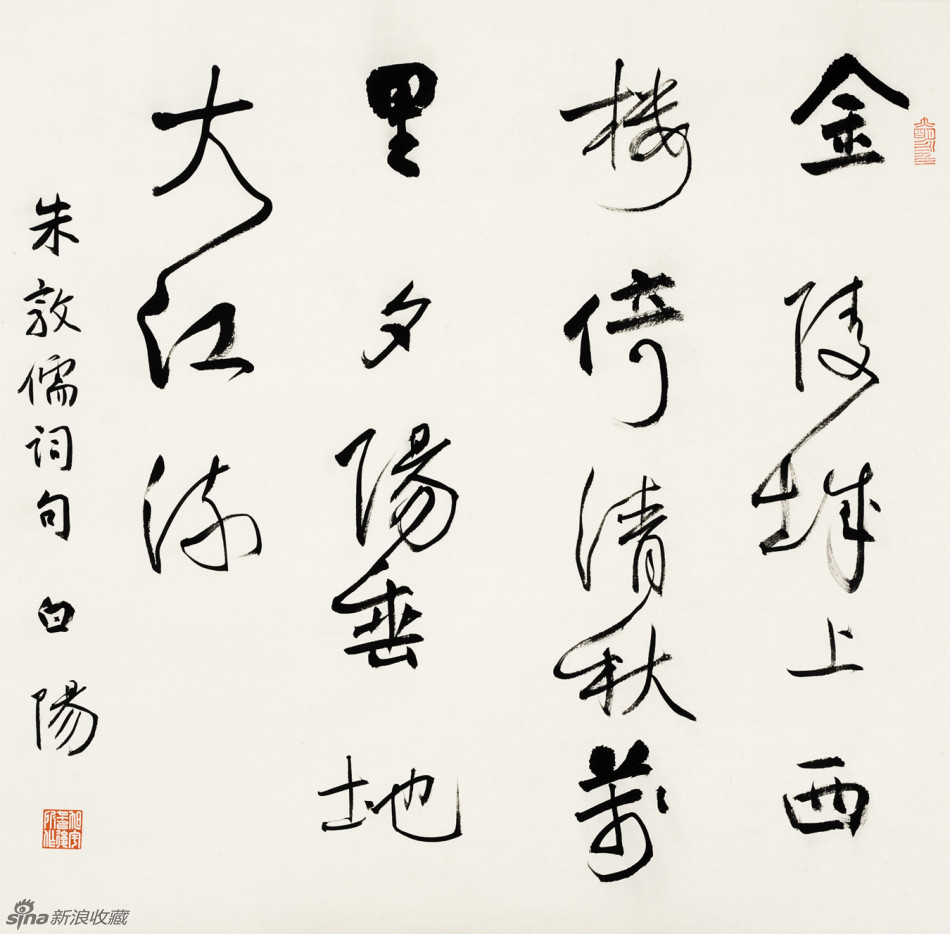 金陵城上西
楼倚清秋萬
里夕陽垂地
大江流
朱敦儒詞句 白陽
sina新浪收藏